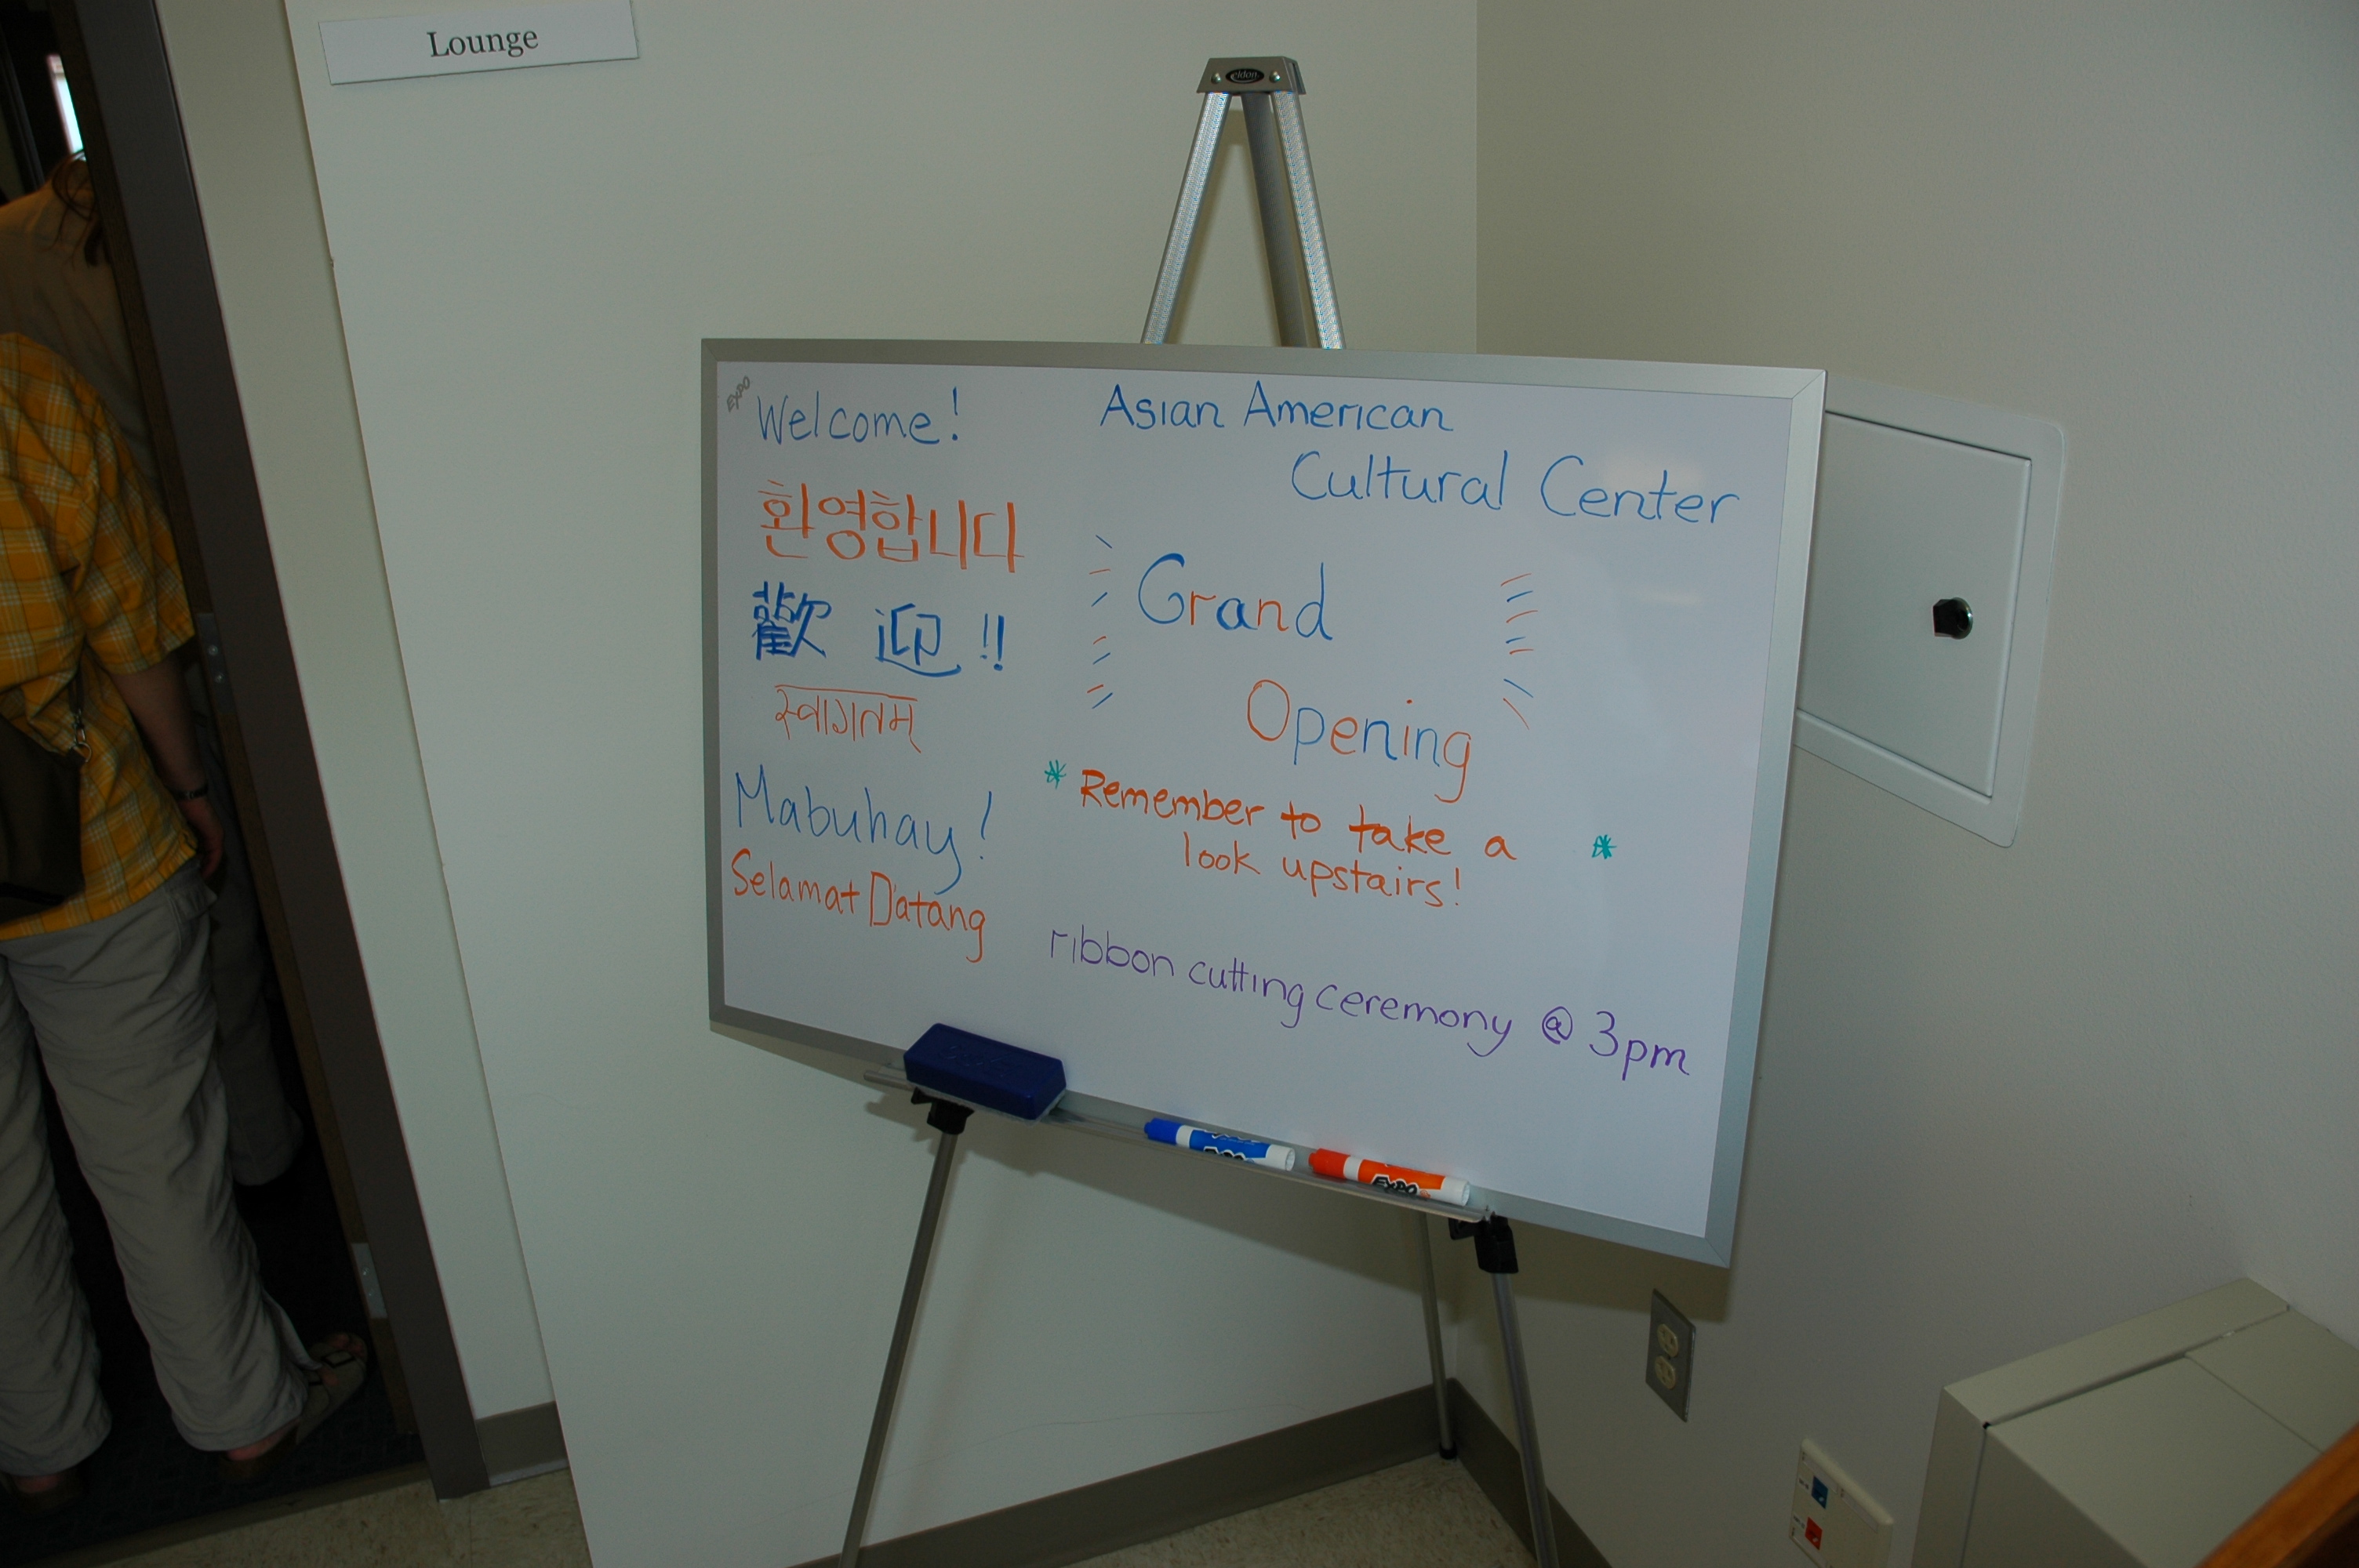 Lounge
eldon
EXPO
Welcome!
환영합니다
歡迎!!
स्वागतम्
Mabuhay!
Selamat Datang
Asian American
Cultural Center
Grand
Opening
* Remember to take a *
look upstairs!
ribbon cutting ceremony @ 3pm
EXPO
EXPO